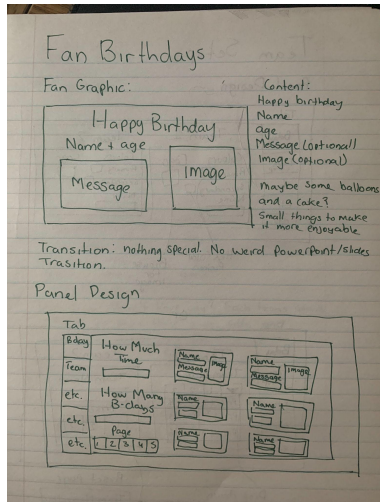 Fan Birthdays
Fan Graphic:
Happy Birthday
Name + age
Message
Image
Content:
Happy birthday
Name
age
Message (optional)
Image (optional)
maybe some balloons
and a cake?
Small things to make
it more enjoyable
Transition: nothing special. No weird PowerPoint/slides
Trasition.
Panel Design
Tab
Bday
Team
etc.
etc.
etc.
How Much
Time
How Many
B-days
Page
1 2 3 4 5
Name
Message
Image
Name
Message
Image
Name
Name
Name
Name